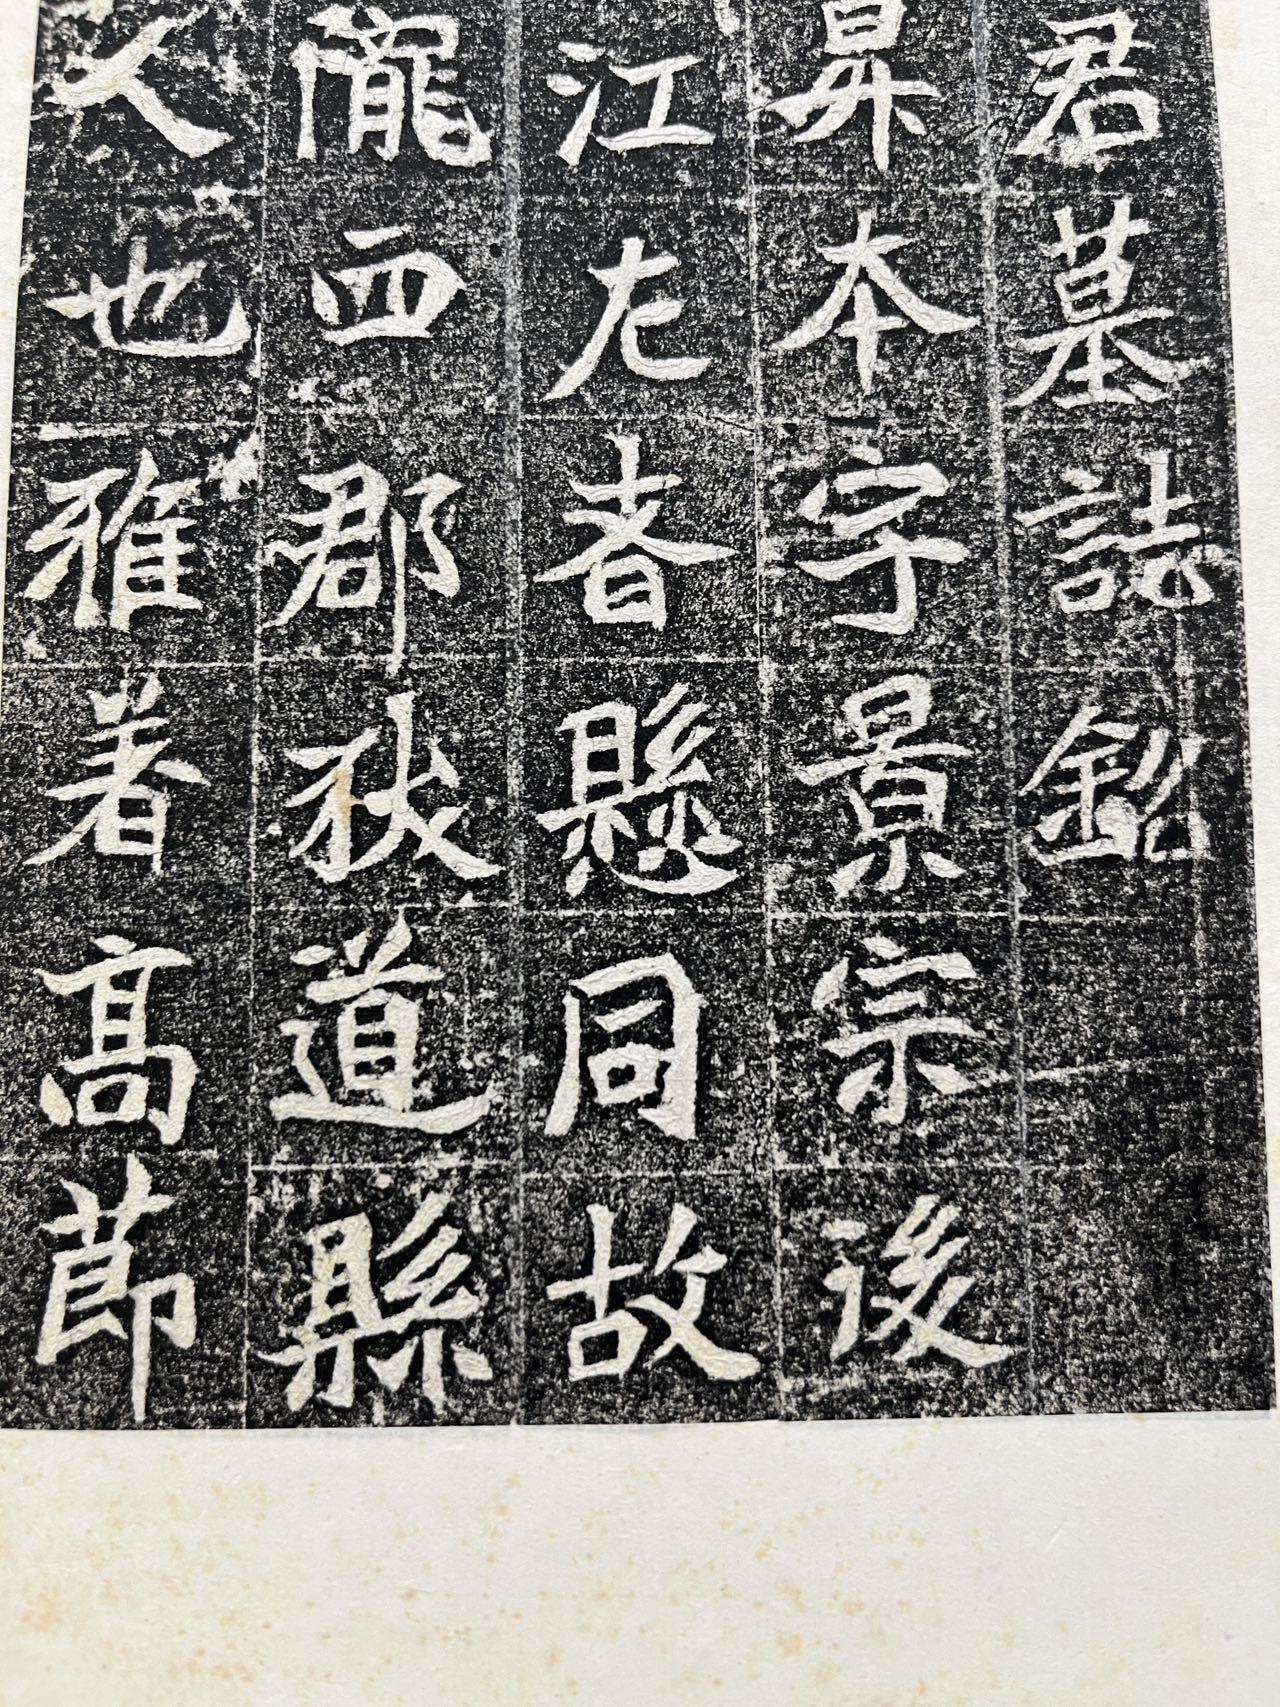 君墓誌銘
昇本字景宗後
江左者懸同故
隴西郡狄道縣
人也雅著高節